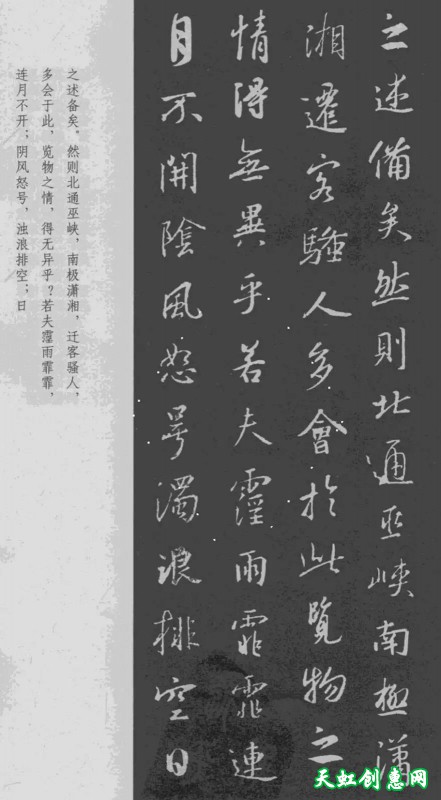 之述備矣然則北通巫峽南極瀟
湘遷客騷人多會於此覽物之
情得無異乎若夫霪雨霏霏連
月不開陰風怒号濁浪排空日
之述备矣。然则北通巫峡，南极潇湘，迁客骚人，
多会于此，览物之情，得无异乎？若夫霪雨霏霏，
连月不开；阴风怒号，浊浪排空；日
天虹创惠网